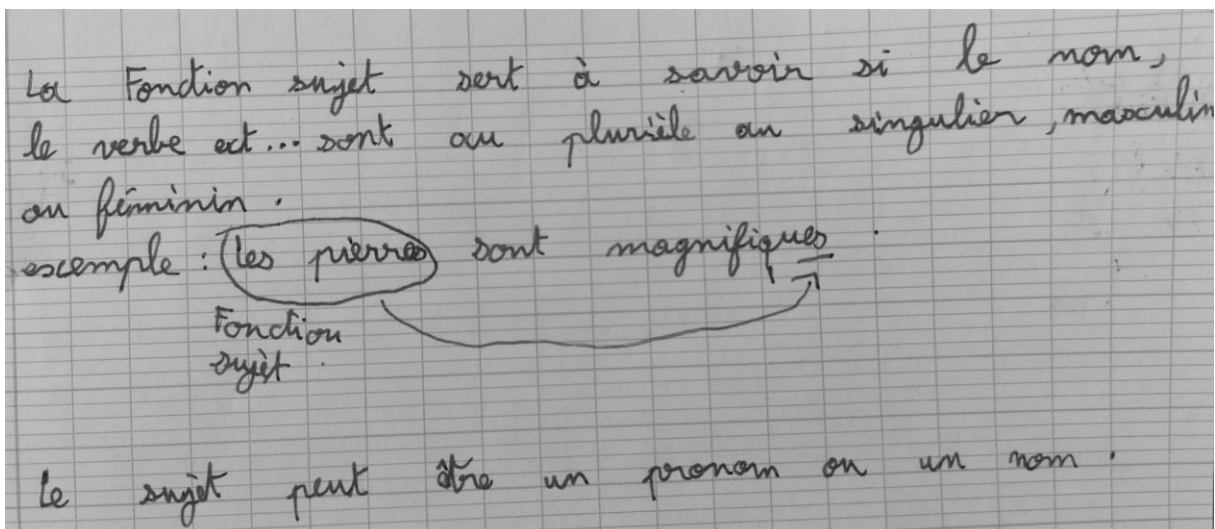 La Fonction sujet sert à savoir si le nom,
le verbe est... sont au plurièle ou singulier, masculin
ou féminin.
exemple : les pierres sont magnifiques.
Fonction
sujèt.
Le sujèt peut être un pronom ou un nom.